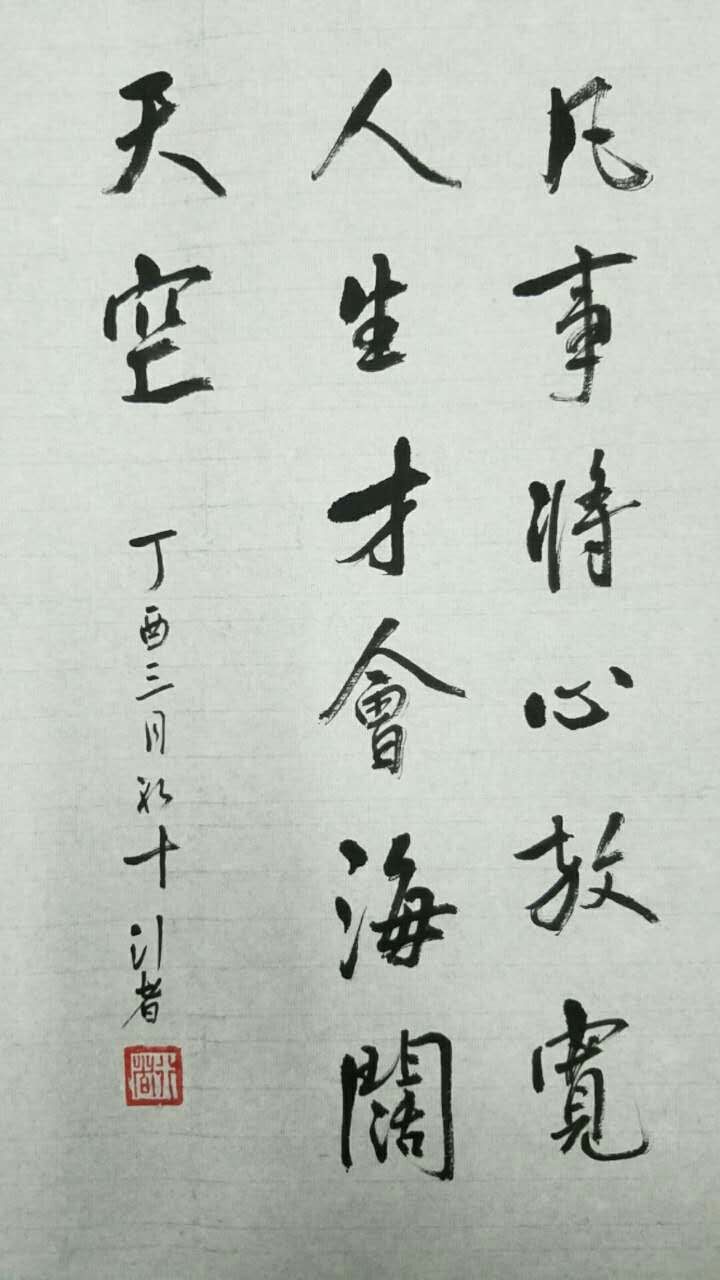 凡事将心放寛
人生才會海闊
天空
丁酉三月初十